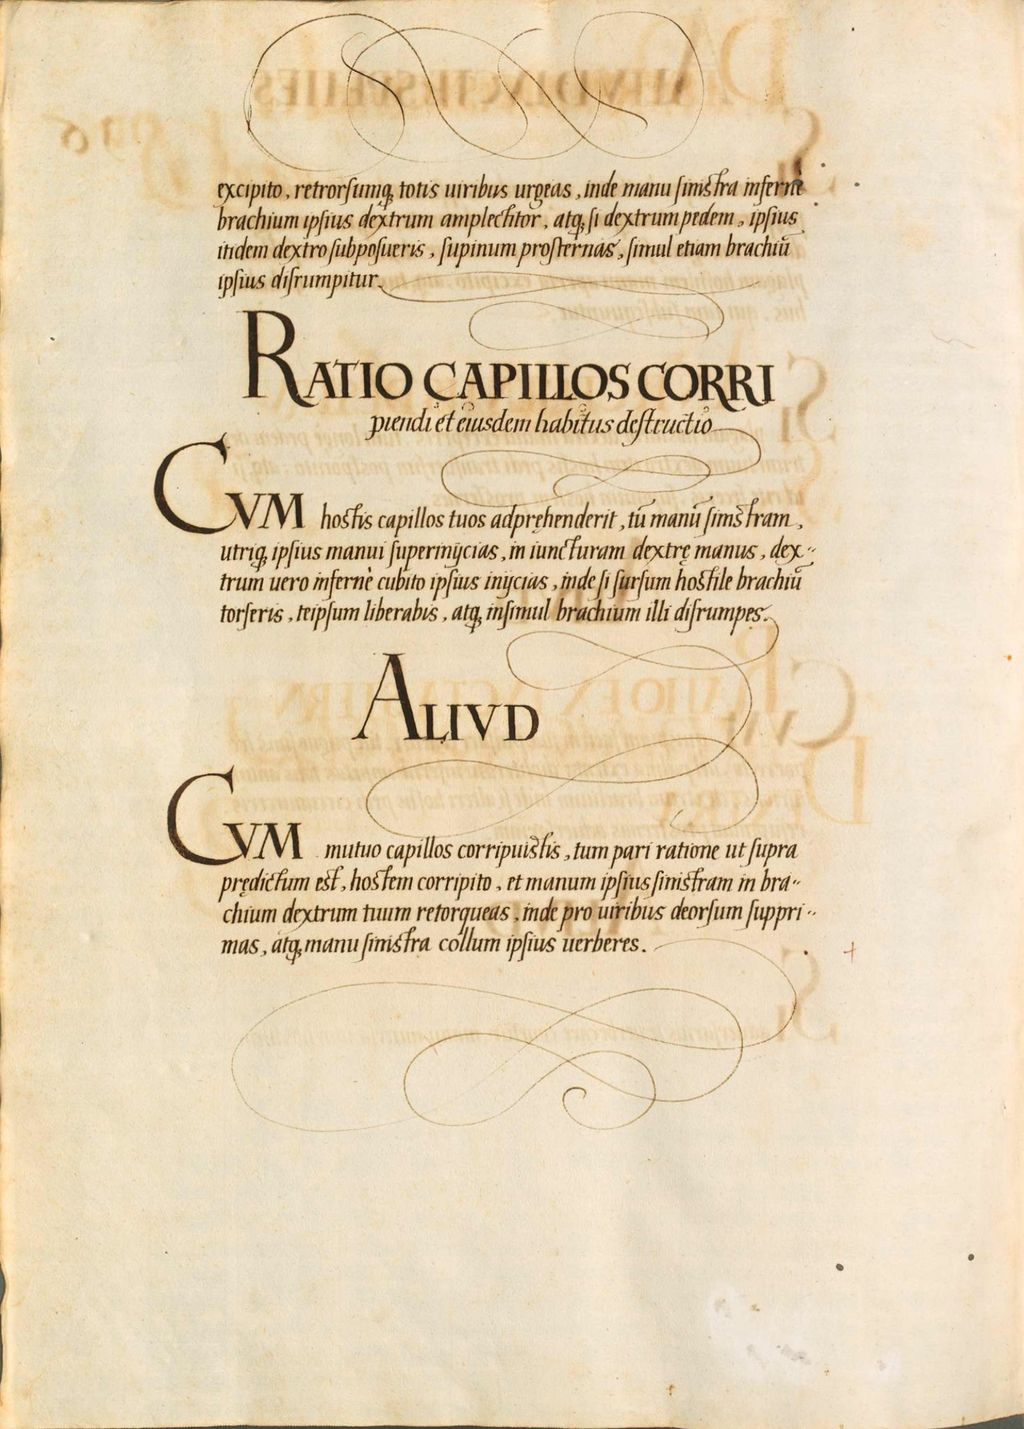 excipito, retrorsumq; totis uiribus urgeas, inde manu sinistra infernè
brachium ipsius dextrum amplectitor, atq; si dextrum pedem, ipsius
itidem dextro subposueris, supinum prosternas, simul etiam brachiũ
ipsius disrumpitur.
RATIO CAPILLOS CORRI
piendi et eiusdem habitus destructio
CVM hostis capillos tuos adpręhenderit, tũ manũ sinistram,
utriq; ipsius manui superinijcias, in iuncturam dextrę manus, dex-
trum uero infernè cubito ipsius inijcias, inde si sursum hostile brachiũ
torseris, teipsum liberabis, atq; insimul brachium illi disrumpes.
ALIVD
CVM mutuo capillos corripuistis, tum pari ratione ut supra
prędictum est, hostem corripito, et manum ipsius sinistram in bra-
chium dextrum tuum retorqueas, inde pro uiribus deorsum suppri-
mas, atq; manu sinistra collum ipsius uerberes.